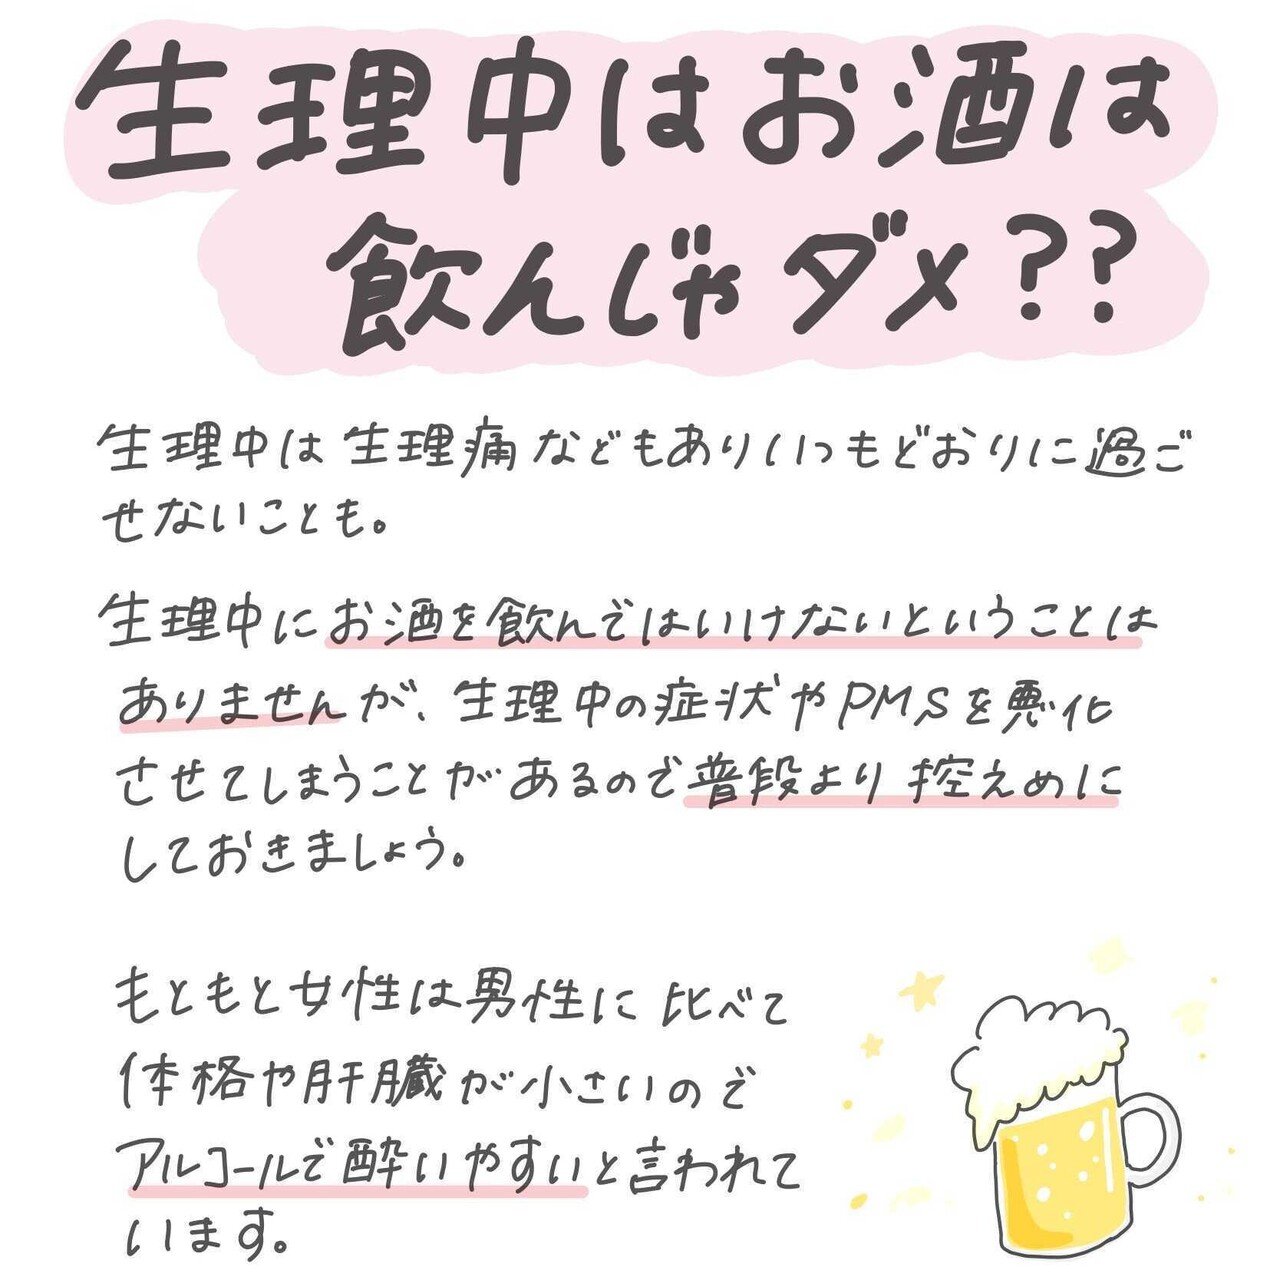 生理中はお酒は
飲んじゃダメ??
生理中は生理痛などもありいつもどおりに過ご
せないことも。
生理中にお酒を飲んではいけないということは
ありませんが、生理中の症状やPMSを悪化
させてしまうことがあるので普段より控えめに
しておきましょう。
もともと女性は男性に比べて
体格や肝臓が小さいので
アルコールで酔いやすいと言われて
います。